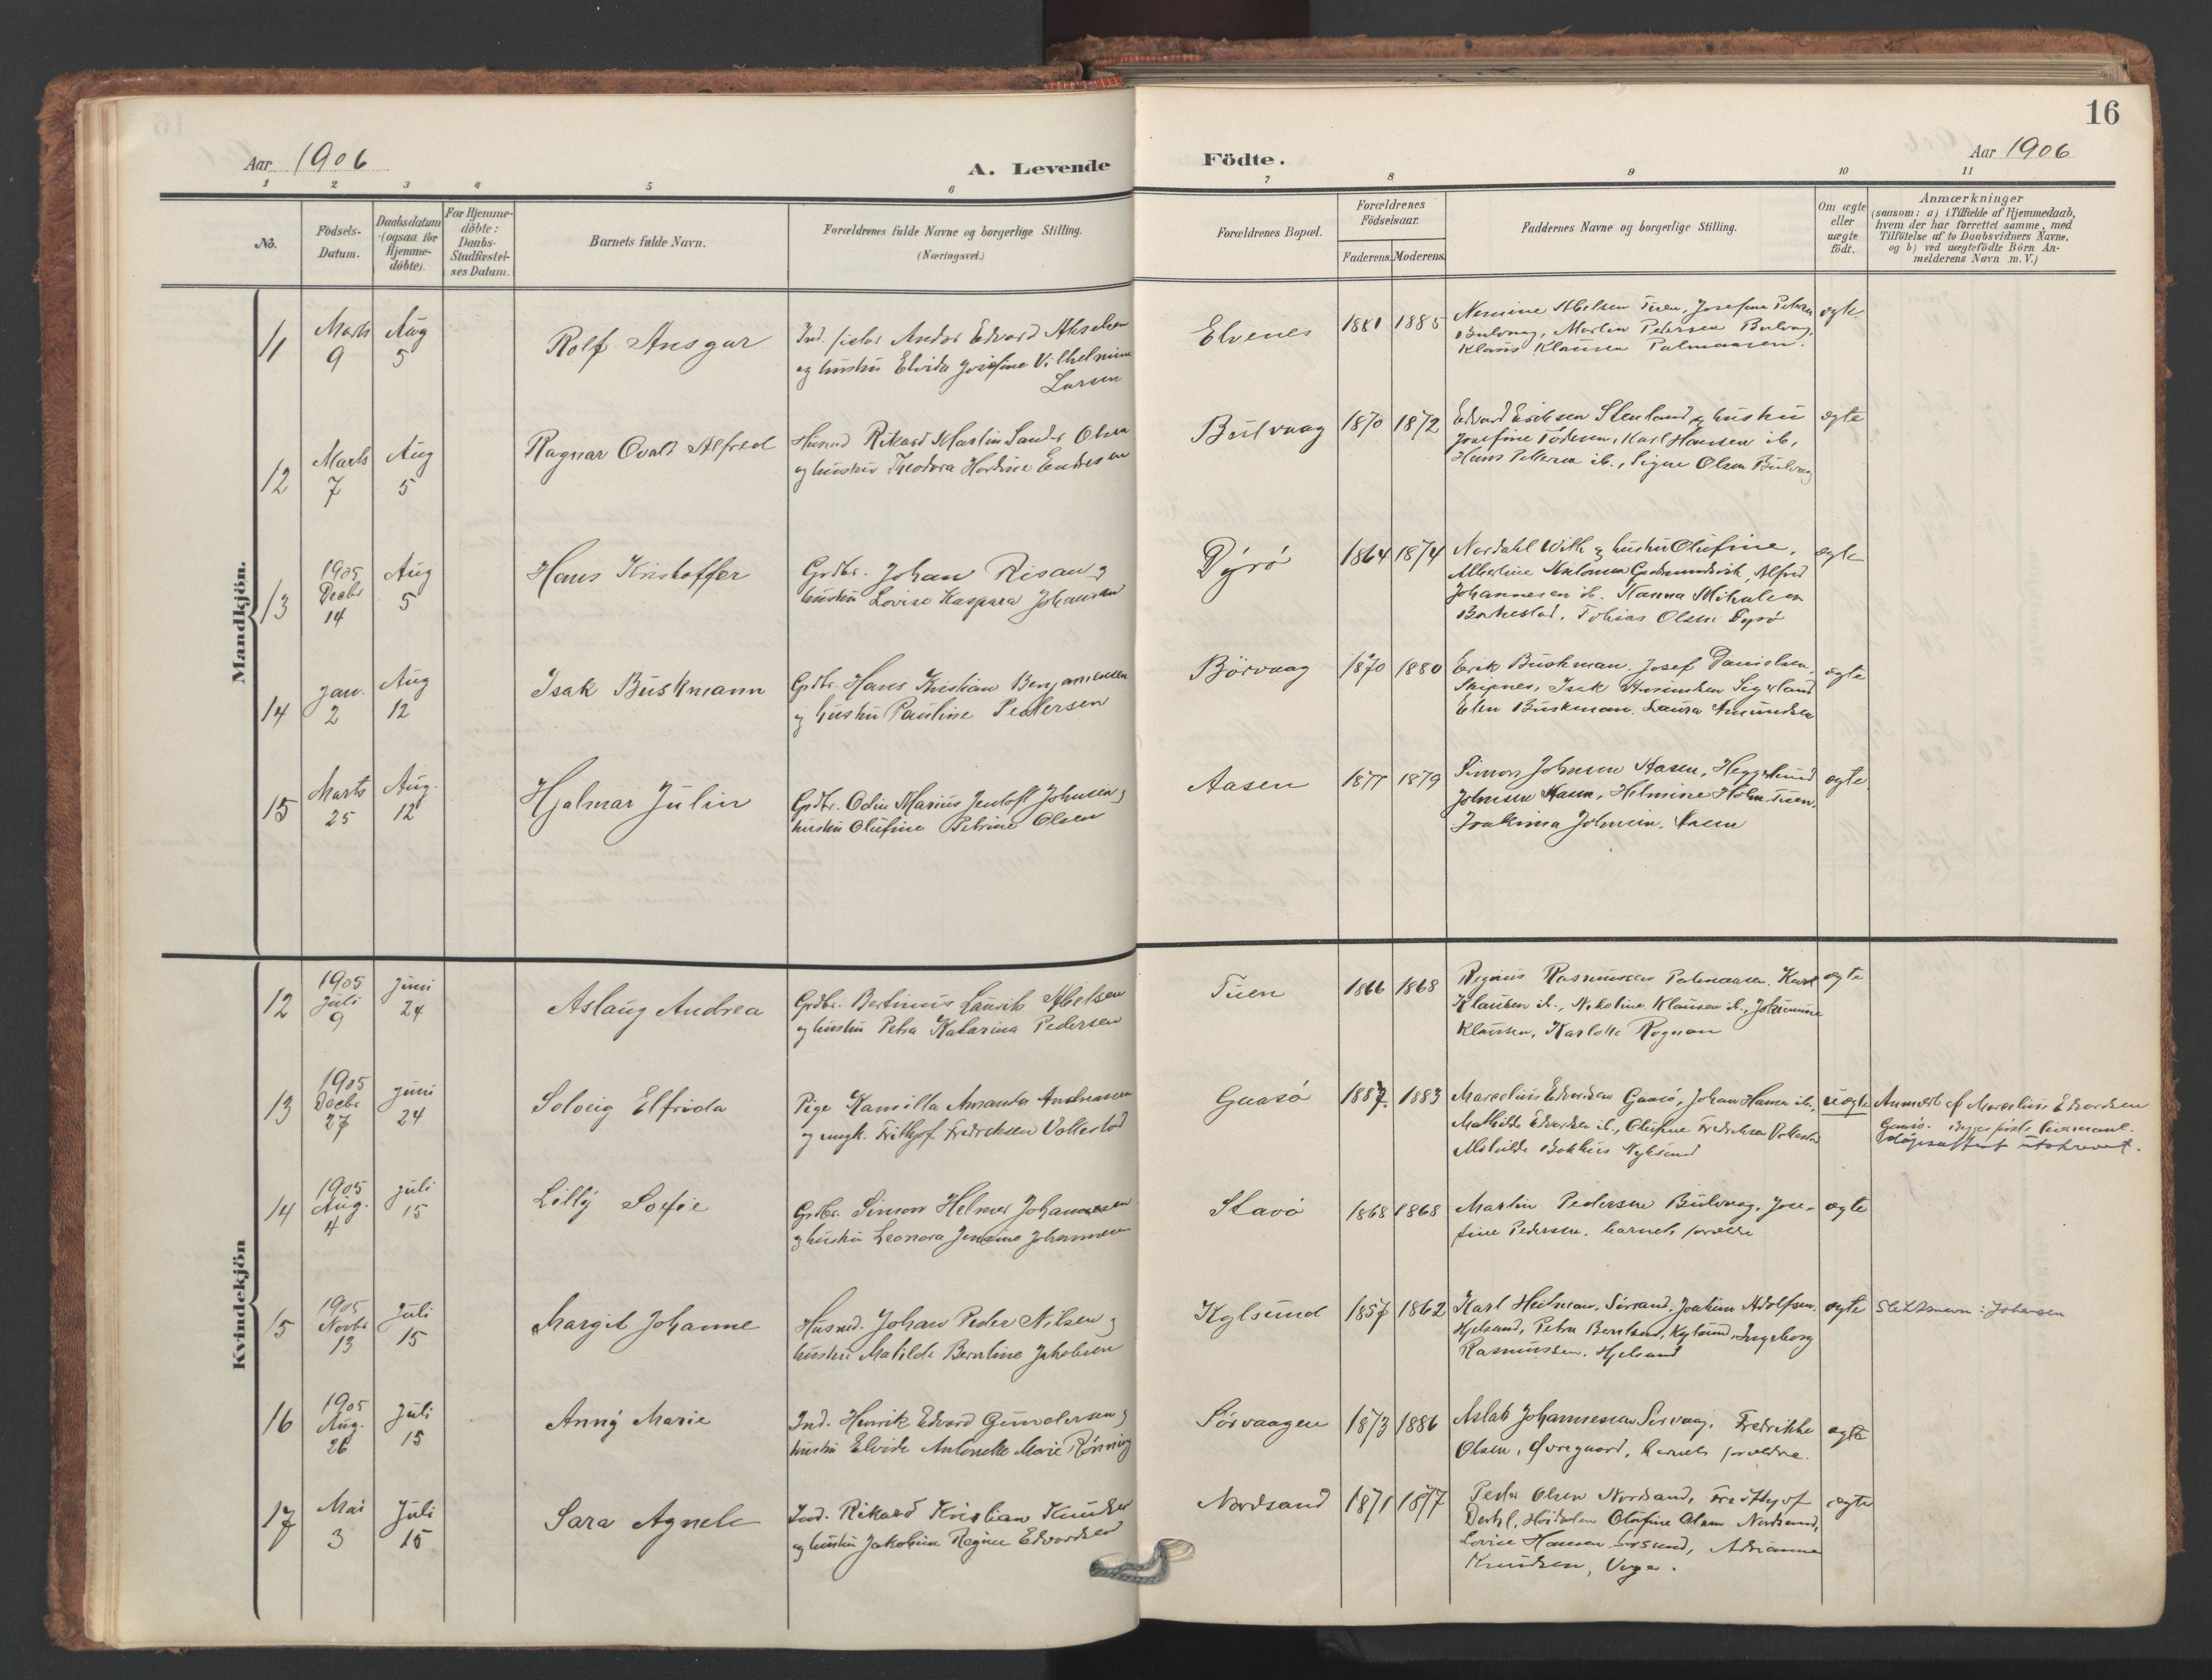 16
Aar 1906
A. Levende
Födte.
Aar 1906
1 2 3 4 5 6 7 8 9 10 11
No.
Födsels-
Datum.
Daabsdatum
(ogsaa for
Hjemme-
döbte).
For Hjemme-
döbte:
Daabs-
Stadfæstel-
ses Datum.
Barnets fulde Navn.
Forældrenes fulde Navne og borgerlige Stilling.
(Næringsvei.)
Forældrenes Bopæl.
Forældrenes
Födselsaar.
Faderens. Moderens.
Faddernes Navne og borgerlige Stilling.
Om ægte
eller
uægte
födt.
Anmærkninger
(saasom: a) i Tilfælde af Hjemmedaab,
hvem der har forrettet samme, med
Tilföielse af to Daabsvidners Navne,
og b) ved uægtefödte Börn An-
melderens Navn m. V.)
Mandkjön.
11
Marts
9
Aug
5
Rolf Ansgar
Ind. fisker Andor Edvard Akselsen
og hustru Elvida Josefine Vilhelmine
Larsen
Elvenes
1881 1885
Nemine Abelsen Tuen, Josefine Peters
Bulvaag, Martin Pedersen Bulvaag,
Klaus Klausen Palmaasen.
ægte
12
Marts
7
Aug
5
Ragnar Ovald Alfred
Husmd Rikard Martin Sander Olsen
og hustru Theodora Hardine Endresen
Bulvaag
1870 1872
Edvard Eriksen Stenland og hustru
Josefine Pedersen, Karl Hansen ib.,
Hans Pettersen ib., Signe Olsen Bulvaag
ægte
13
1905
Decbr
14
Aug
5
Hans Kristoffer
Grdbr. Johan Risan og
hustru Lovise Kaspara Johansen
Dyrö
1864 1874
Nordahl With og hustru Olufine,
Albertine Gudmundsvik, Alfred
Johannesen ib. Hanna Mikalsen
Barkestad, Tobias Olsen Dyrö
ægte
14
Jan.
2
Aug
12
Isak Buskmann
Grdbr. Hans Kristian Benjaminsen
og hustru Pauline Pedersen
Börvaag
1870 1880
Erik Buskman, Josef Danielsen,
Skipnes, Isak Amundsen Sigerland
Elen Buskman. Laura Amundsen
ægte
15
Marts
25
Aug.
12
Hjalmar Julin
Grdbr. Odin Marius Jentoft Johnsen og
hustru Olufine Petrine Olsen
Aasen
1877 1879
Simon Johnsen Aasen, Heggelund
Johnsen Aasen, Helmine Holm, Tuen,
Joakima Johnsen, Aasen
ægte
Kvindekjön
12
1905
Juli
9
Juni
24
Aslaug Andrea
Grdbr. Bertinus Laurik Abelsen
og hustru Petra Katarina Pedersen
Tuen
1866 1868
Rognus Rasmussen Palmaasen. Karl
Klausen ib., Nikoline Klausen ib., Johannine
Klausen, Karlotte Rognan
ægte
13
1905
Decbr
27
Juni
24
Solveig Elfrida
Pige Kamilla Amanda Andreassen
og ungk. Frithjof Fredriksen Vottestad
Gaasö
1887 1883
Marcelius Edvardsen Gaasö, Johan Hansen ib.,
Mathilde Edvardsen ib., Olufine Fredriksen Vottestad
Mathilde Bakkius Nyksund
uægte
Anmeldt af Marcelius Edvardsen
Gaasö. Begges förste leiermaal.
Daapsattest utskrevet.
14
1905
Aug.
4
Juli
15
Lilly Sofie
Grdbr. Simon Helmer Johannesen
og hustru Leonora Jensine Johannesen
Stavö
1868 1868
Martin Pedersen Bulvaag, Jose-
fine Pedersen. barnets forældre
ægte
15
1905
Novbr
13
Juli
15
Margit Johanne
Husmd. Johan Peder Nilsen og
hustru Matilde Berntine Jakobsen
Kylsund
1857 1862
Karl Heitman, Sörsand, Joakim Adolfsen,
Hjelsand, Petra Berntsen, Kylsund, Ingeborg
Rasmussen. Hjelsand
ægte
Slektsnavn: Johansen
16
1905
Aug.
26
Juli
15
Anny Marie
Ind. Henrik Edvard Gundersen og
hustru Elvide Antonette Marie Rönning
Sörvaagen
1873 1886
Aslak Johannesen Sörvaag. Fredrikke
Olsen, Övregaard, barnets forældre.
ægte
17
Mai
3
Juli
15
Sara Agnete
Ind. Rikard Kristian Knudsen
og hustru Jakobine Regine Edvardsen
Nordsand
1871 1877
Peder Olsen Nordsand, Fredthjof
Dertil, Höidalen Olufine Olsen Nordsand,
Lovise Hansen Sörsand, Adrianne
Knudsen, Vage.
ægte